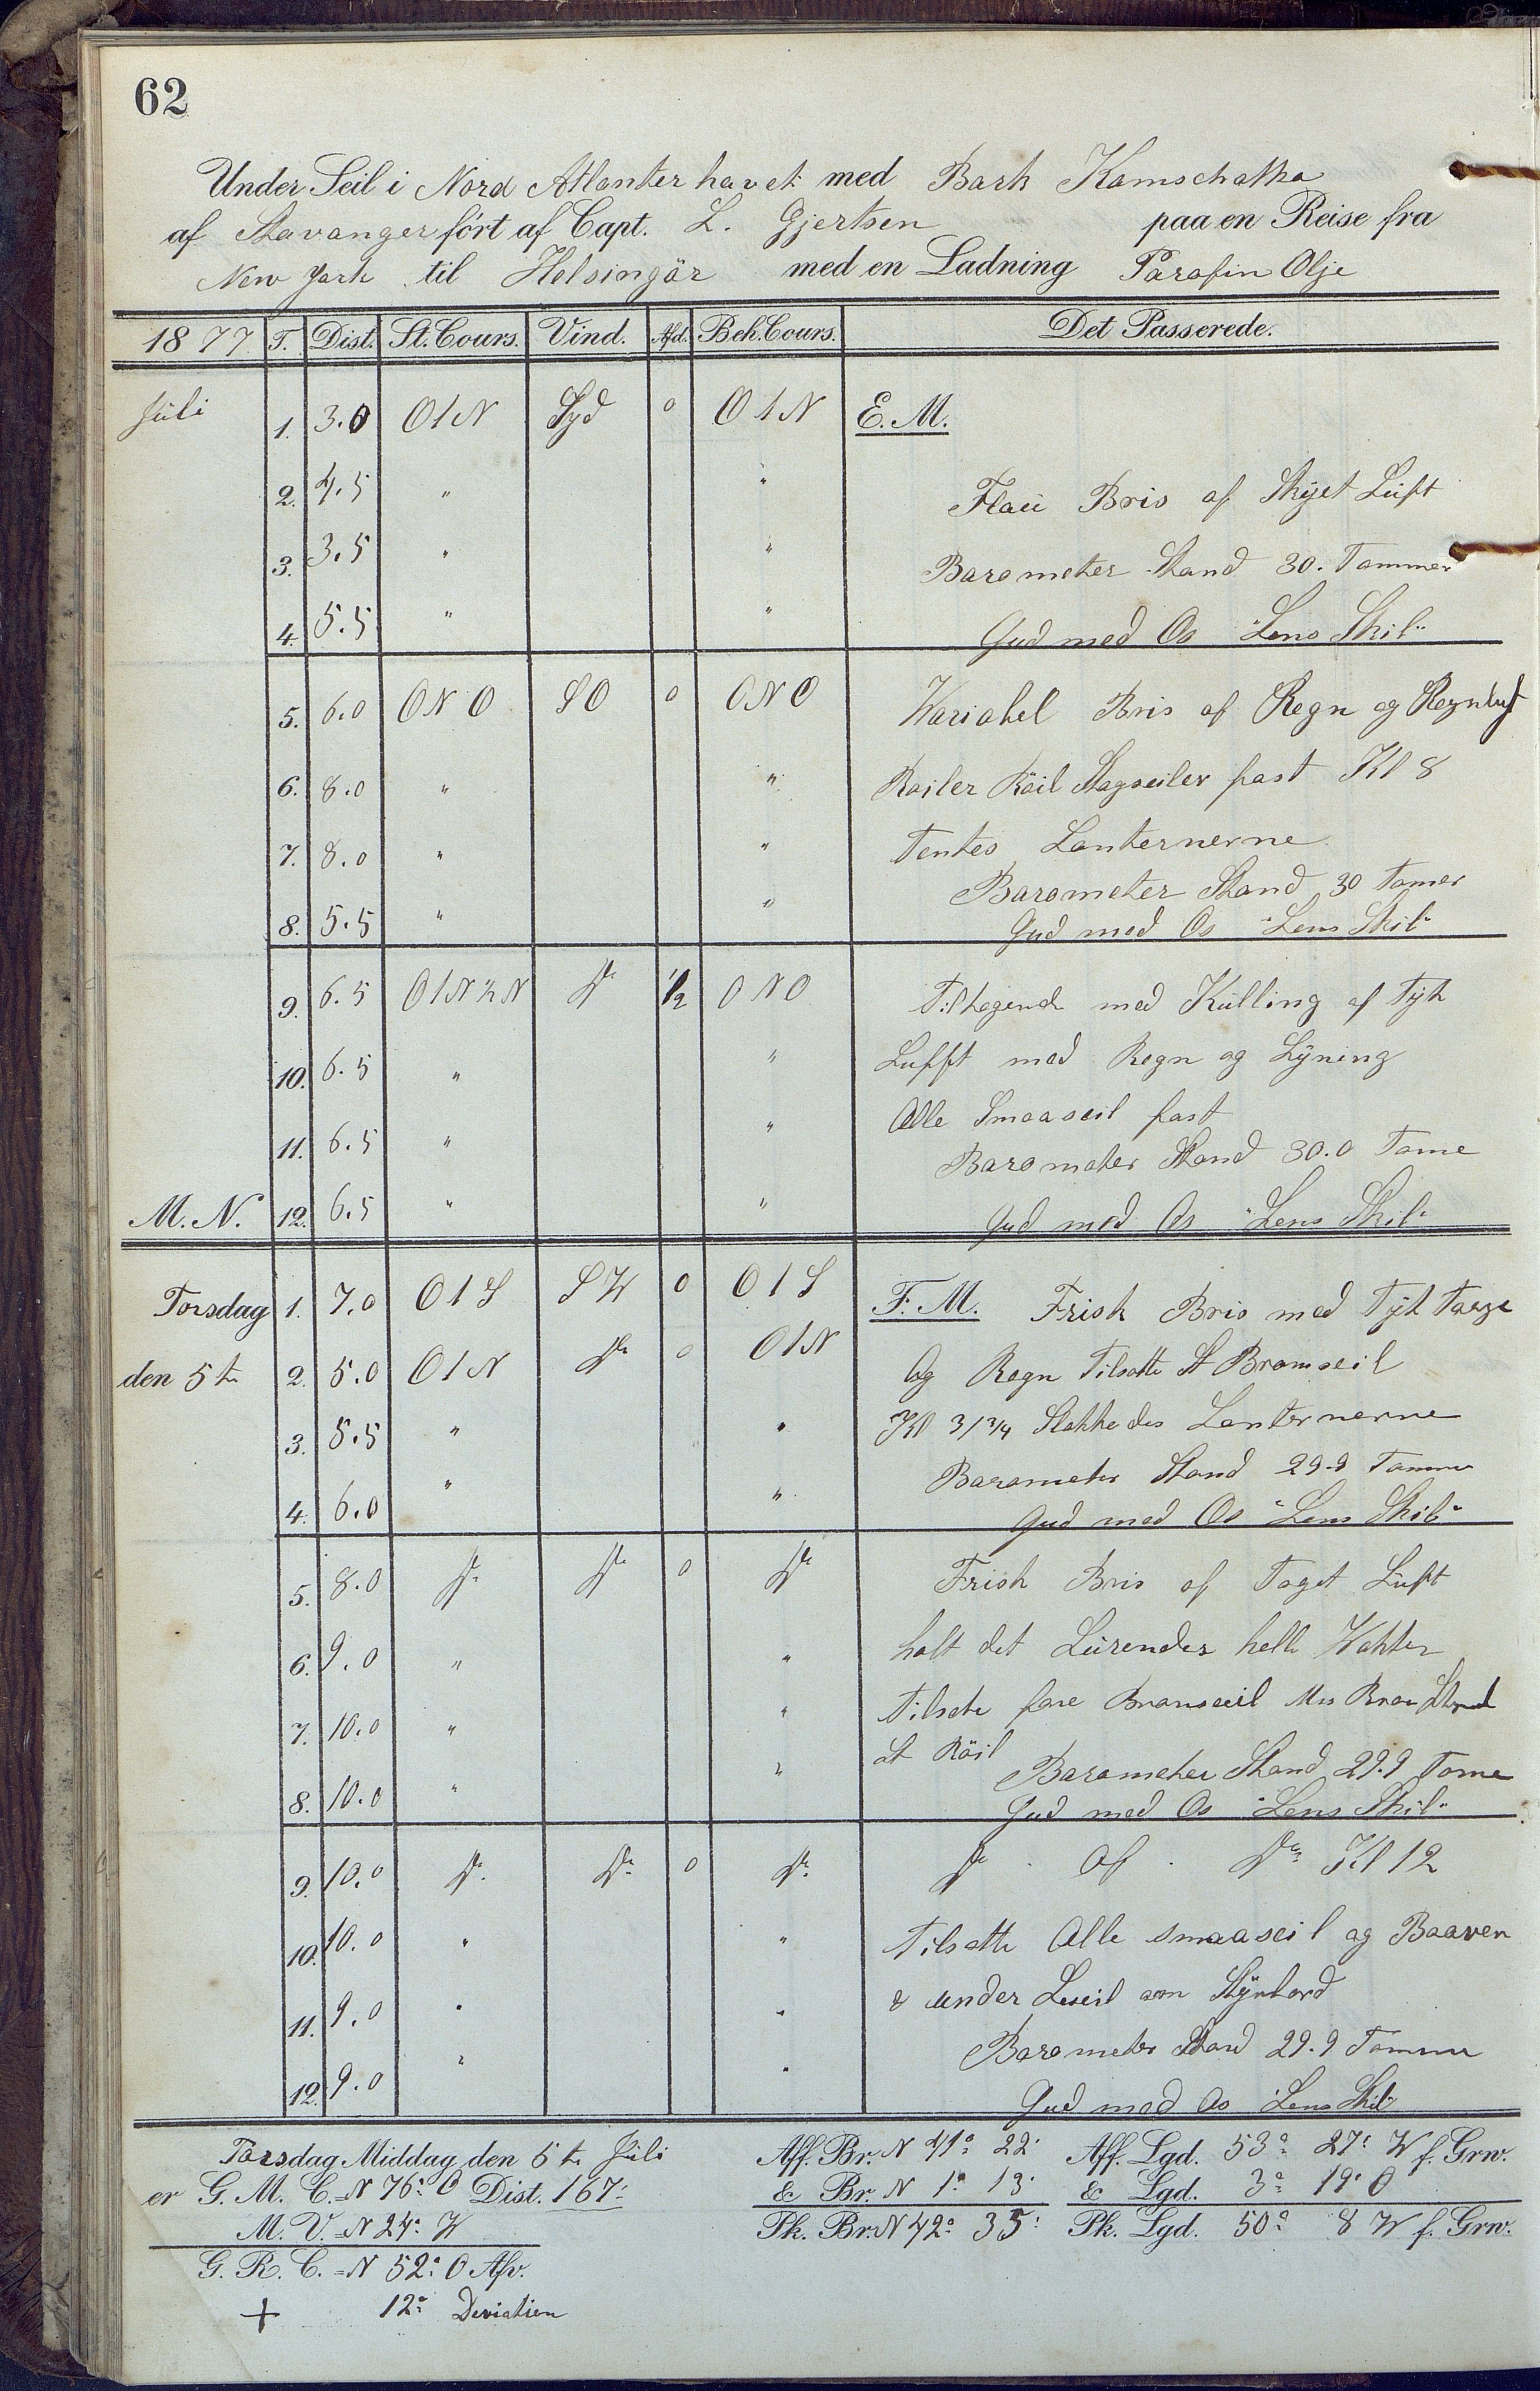 62
Under Seil i Nord Atlanterhavet med Bark Kamschatka
af Stavanger ført af Capt. L. Gjertsen paa en Reise fra
New York til Helsingör med en Ladning Parafin Olje
1877 T. Dist. St. Cours. Vind. Afd. Beh. Cours. Det Passerede.
Juli 1. 3.0 O1N Syd 0 O1N E. M.
2. 4.5 " " Flau Bris af Skyet Luft
3. 3.5 " " Barometer Stand 30. Tommer
4. 5.5 " " Gud med Os "Lens Skib"
5. 6.0 ONO SO 0 ONO Wariabel Bris af Regn og Regnluft
6. 8.0 " " Roiler Röil Stagseiler fast Kl 8
7. 8.0 " " Tentes Lanternerne
Barometer Stand 30 Tomer
8. 5.5 " " Gud med Os "Lens Skib"
9. 6.5 O1N½N Do 1/2 ONO Tiltagende med Kulling af Tyk
10. 6.5 " " Lufft med Regn og Lyning
11. 6.5 " " Alle Smaaseil fast
Barometer Stand 30.0 Tome
M. N. 12. 6.5 " " Gud med Os "Lens Skib"
Torsdag 1. 7.0 O1S SW 0 O1S F. M. Frisk Bris med Tyk Taage
den 5te 2. 5.0 O1N Do 0 O1N Og Regn Tilsatte St Bramseil
3. 5.5 " " Kl 3/¾ Slukkedes Lanternerne
Barometer Stand 29.9 Tomme
4. 6.0 " " Gud med Os "Lens Skib"
5. 8.0 Do Do 0 Do Frisk Bris af Taget Luft
6. 9.0 " " holt det Lurendes helle Wakten
7. 10.0 " " Tilsate fore Bramseil
St Röil Barometer Stand 29.9 Tome
8. 10.0 " " Gud med Os "Lens Skib"
9. 10.0 Do Do 0 Do Do Af Do Kl 12
10. 10.0 " " Tilsatte Alle smaaseil og Baaven
11. 9.0 " " & under Leseil om Styrbord
Barometer Stand 29.9 Tomme
12. 9.0 " " Gud med Os "Lens Skib"
Torsdag Middag den 5te Juli Aff. Br. N 41° 22' Aff. Lgd. 53° 27' W f. Grw.
er G. M. C. =N 76° O Dist. 167' & Br. N 1° 13' & Lgd. 3° 19' O
M. V. =N 24° W Pk. Br. N 42° 35' Pk. Lgd. 50° 8 W f. Grw.
G. R. C. =N 52° O Afv.
+ 12° Deviation